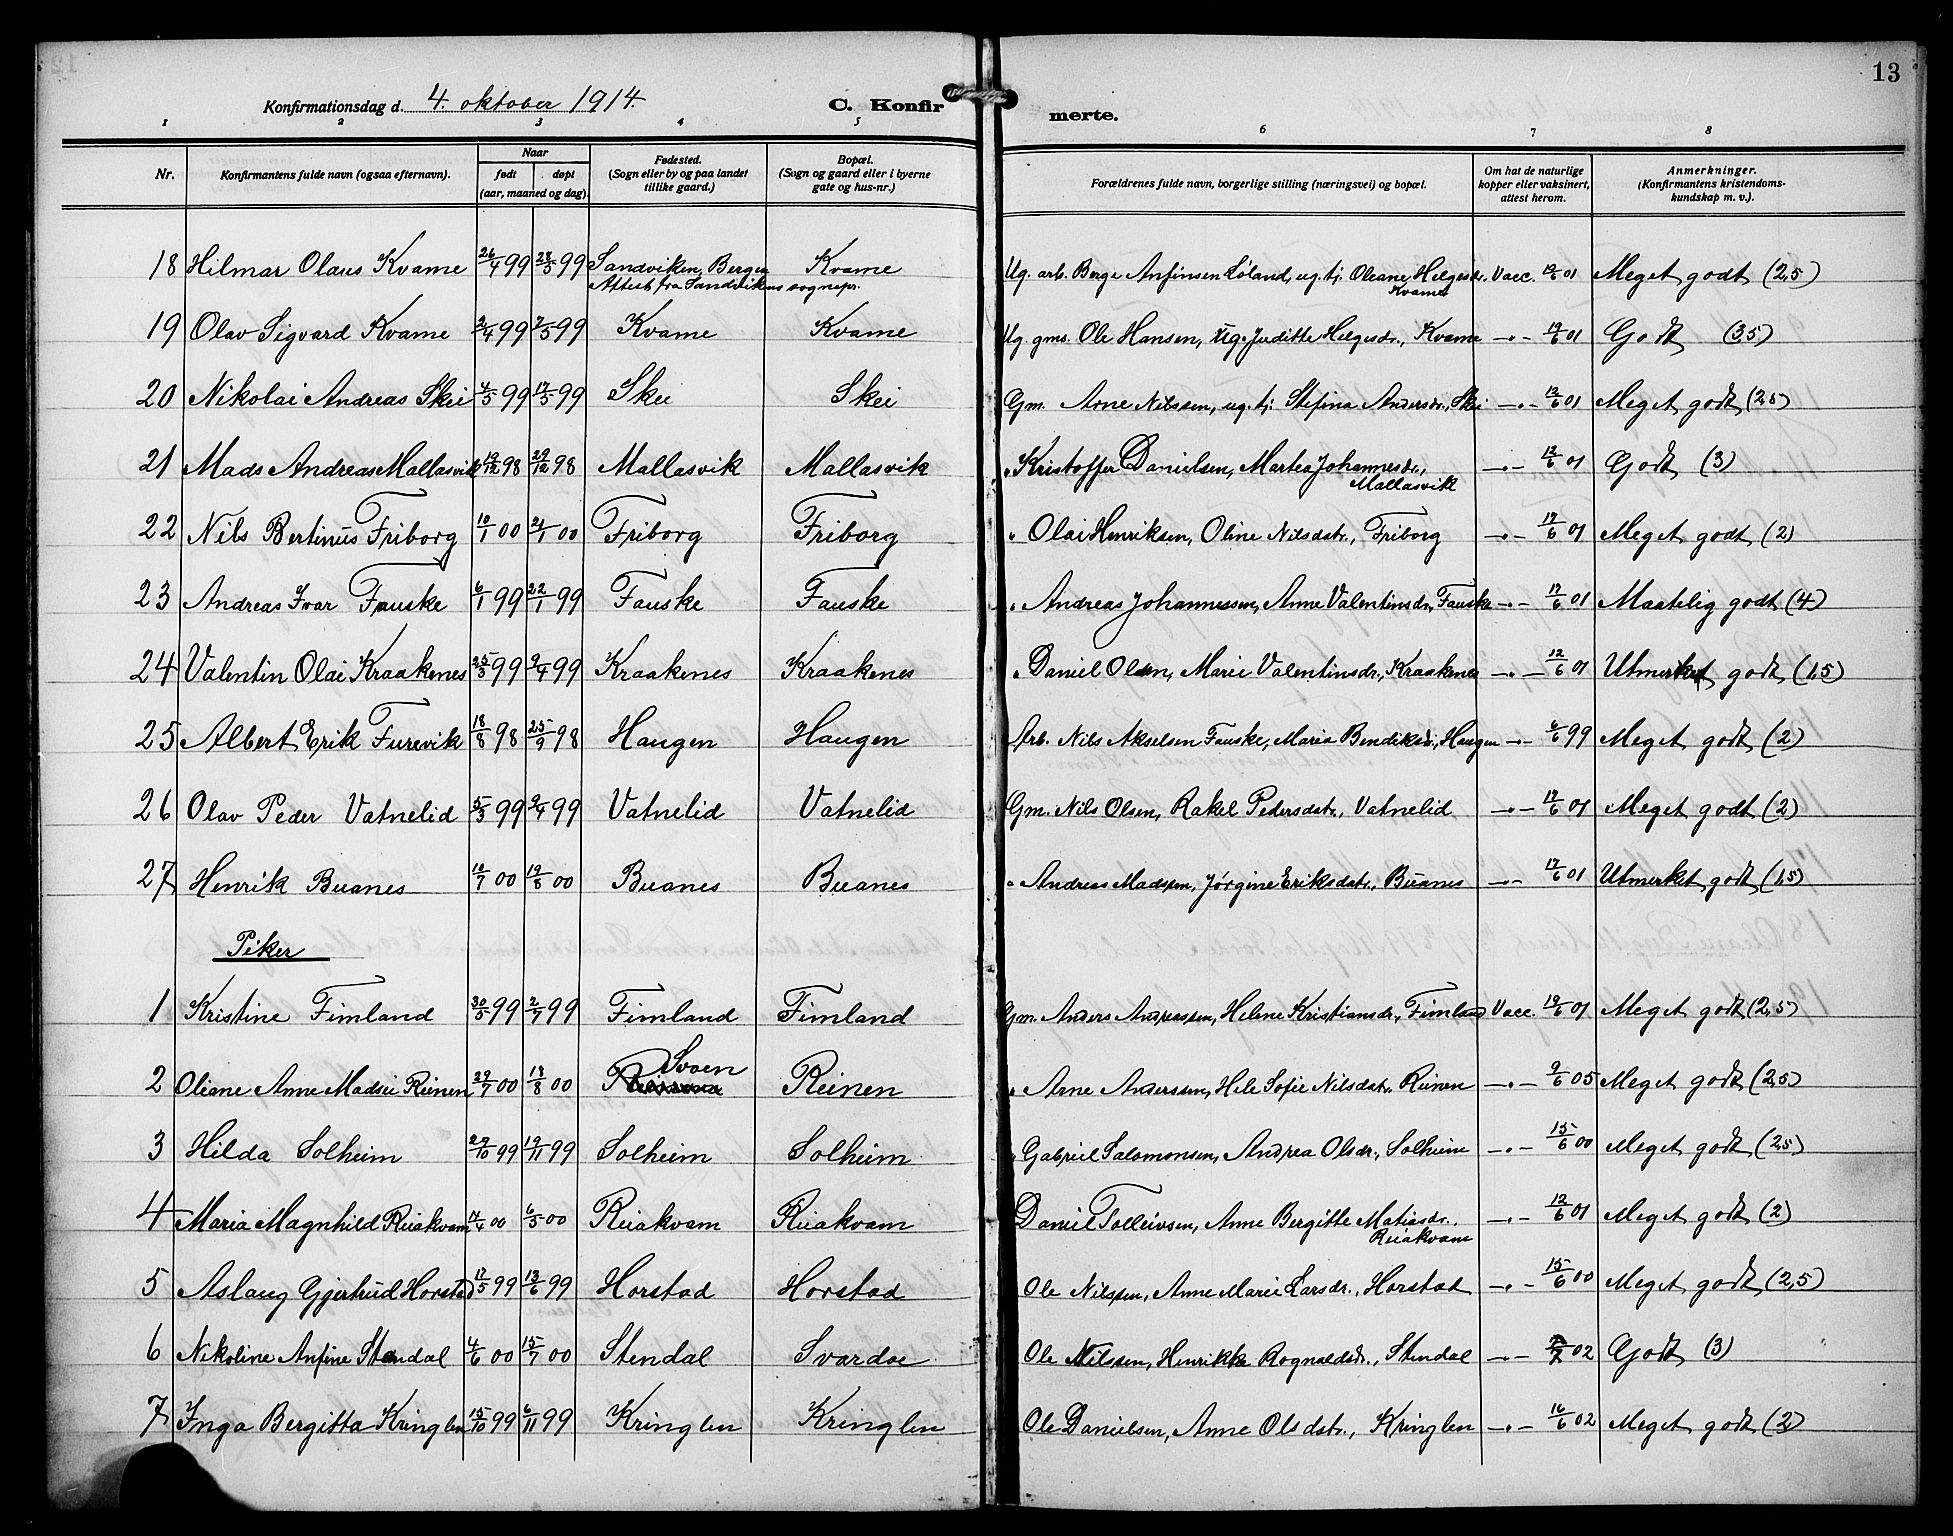 13
Konfirmationsdag d. 4. oktober 1914.
C. Konfir merte.
1 2 3 4 5 6 7 8
Nr. Konfirmantens fulde navn (ogsaa efternavn). Naar født døpt (aar, maaned og dag) Fødested. (Sogn eller by og paa landet tillike gaard.) Bopæl. (Sogn og gaard eller i byerne gate og hus-nr.) Forældrenes fulde navn, borgerlige stilling (næringsvei) og bopæl. Om hat de naturlige kopper eller vaksinert, attest herom. Anmerkninger. (Konfirmantens kristendoms- kundskap m. v.).
18 Hilmar Olaus Kvame 26/4 99 28/5 99 Sandviken, Bergen Kvame Ug. arb. Berge Anfinsen Løland, ug. tj. Oleane Helgesdr. Vacc. 12/6 01 Meget godt (2,5)
Attest fra Sandvikens sognepr. Kvame
19 Olav Sigvard Kvame 2/4 99 7/5 99 Kvame Kvame Ug. gms. Ole Hansen, ug. Juditte Helgesdr., Kvame —〃— 12/6 01 Godt (3,5)
20 Nikolai Andreas Skei 4/5 99 17/5 99 Skei Skei Gm. Arne Nilssen, ug. tj. Stefina Andersdr., Skei —〃— 12/6 01 Meget godt (2,5)
21 Mads Andreas Mallasvik 19/12 98 29/12 98 Mallasvik Mallasvik 〃 Kristoffer Danielsen, Martea Johannesdr., —〃— 12/6 01 Godt (3)
Mallasvik
22 Nils Bertinus Friborg 10/1 00 21/1 00 Friborg Friborg 〃 Olai Henriksen, Oline Nilsdatr., Friborg —〃— 12/6 01 Meget godt (2)
23 Andreas Ivar Fauske 6/1 99 22/1 99 Fauske Fauske 〃 Andreas Johannessen, Anne Valentinsdr, Fauske —〃— 12/6 01 Maatelig godt (4)
24 Valentin Olai Kraakenes 25/3 99 3/4 99 Kraakenes Kraakenes 〃 Daniel Olsen, Marie Valentinsdr., Kraakenes —〃— 12/6 01 Utmerket godt (1,5)
25 Albert Erik Furevik 18/8 98 25/9 98 Haugen Haugen Arb. Nils Akselsen Fauske, Maria Bendiksdr., Haugen —〃— 6/6 99 Meget godt (2)
26 Olav Peder Vatnelid 5/3 99 3/4 99 Vatnelid Vatnelid Gm. Nils Olsen, Rakel Pedersdatr., Vatnelid —〃— 12/6 01 Meget godt (2)
27 Henrik Buanes 10/7 00 19/8 00 Buanes Buanes 〃 Andreas Madssen, Jørgine Eriksdatr., Buanes —〃— 12/6 01 Utmerket godt (1,5)
Piker
1 Kristine Fimland 30/5 99 2/7 99 Fimland Fimland Gm. Anders Andreassen, Helene Kristiansdr., Fimland Vacc. 12/6 01 Meget godt (2,5)
2 Oliane Anne Madsie Reinen 29/7 00 18/8 00 Svoen Reinen 〃 Arne Anderssen, Hele Sofie Nilsdatr. Reinen —〃— 9/6 05 Meget godt (2,5)
3 Hilda Solheim 29/10 99 19/11 99 Solheim Solheim 〃 Gabriel Salomonsen, Andrea Olsdr., Solheim —〃— 15/6 00 Meget godt (2,5)
4 Maria Magnhild Reiakvam 17/4 00 6/5 00 Reiakvam Reiakvam Daniel Tolleivsen, Anne Bergitte Matiasdr., —〃— 12/6 01 Meget godt (2)
Reiakvam
5 Aslaug Gjertrud Horstad 17/5 99 13/6 99 Horstad Horstad Ole Nilssen, Anne Marie Larsdr., Horstad —〃— 15/6 00 Meget godt (2,5)
6 Nikoline Anfine Stendal 4/6 00 15/7 00 Stendal Svardøe Ole Nilssen, Henrikke Rognaldsdr., Stendal —〃— 02 Godt (3)
7 Inga Bergitta Kringlen 15/10 99 6/11 99 Kringlen Kringlen Ole Danielsen, Anne Olsdatr., Kringlen —〃— 16/6 02 Meget godt (2)